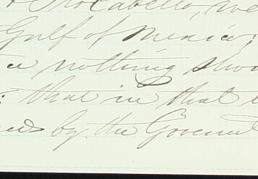 Cabello, we
Gulf of Mexico
nothing shou
that in that
by the Govern